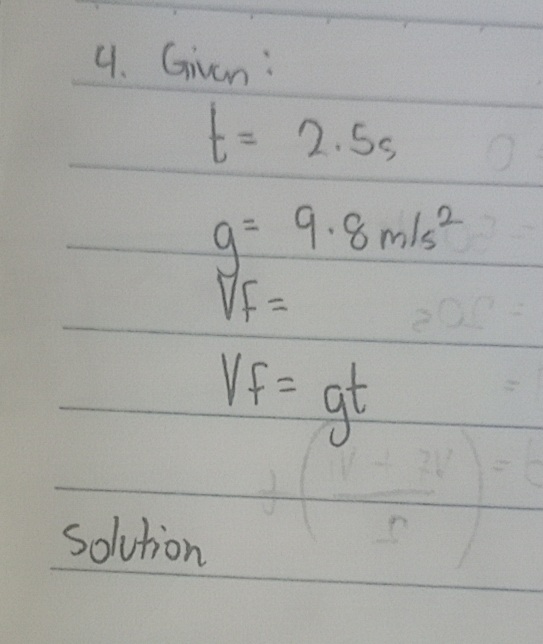 4. Given:
t = 2.5s
g = 9.8 m/s²
Vf =
Vf = gt
Solution